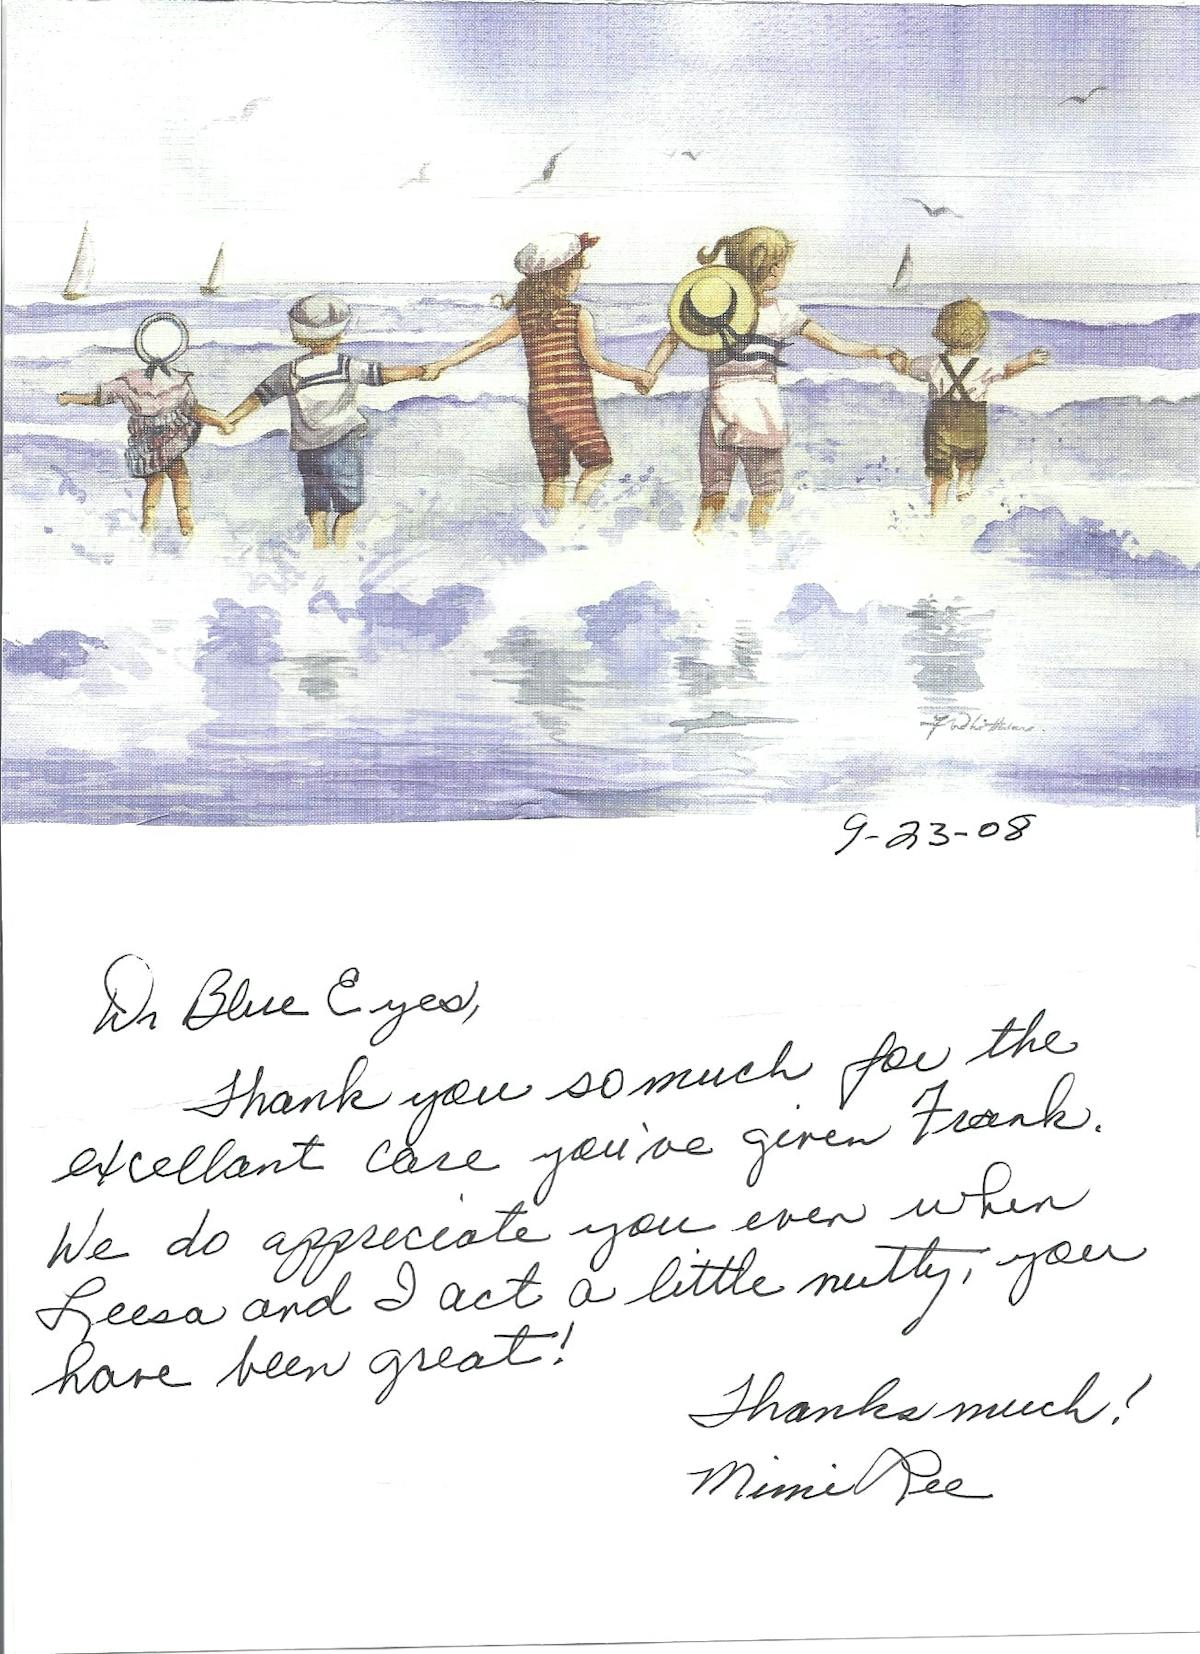 9-23-08
Dr Blue Eyes,
Thank you so much for the
excellant care you've given Frank.
We do appreciate you even when
Leesa and I act a little nutty, you
have been great!
Thanks much!
Mimi Ree